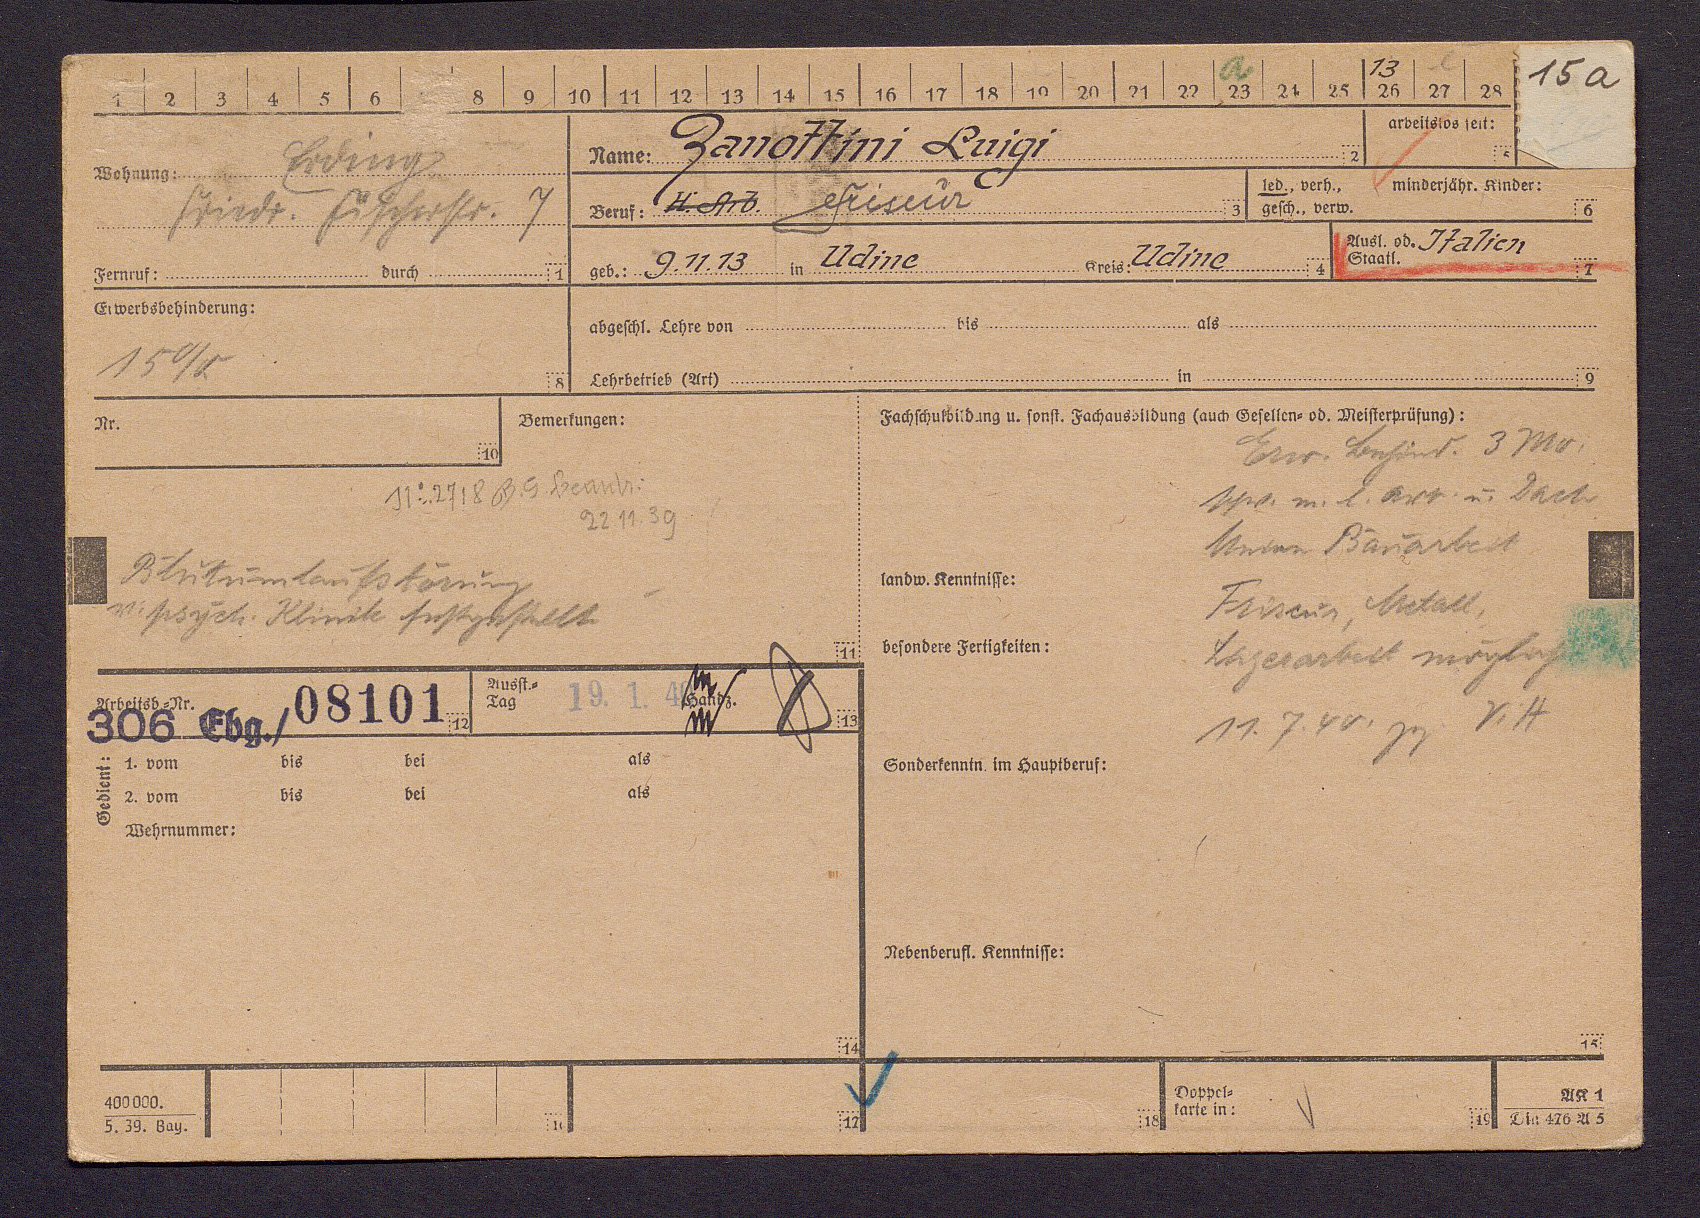 1 2 3 4 5 6 8 9 10 11 12 13 14 15 16 17 18 19 20 21 22 23 24 25 26 27 28
a 13
15 a
Wohnung: Erding
Friedr. Fischerstr. 7
Fernruf: durch 1
Name: Zanottini Luigi 2
arbeitslos seit: 5
Beruf: H. Arb. Friseur 3
led., verh., gesch., verw.
minderjähr. Kinder: 6
geb.: 9.11.13 in Udine Kreis: Udine 4
Ausl. od. Staatl. Italien 7
Erwerbsbehinderung:
15% 8
abgeschl. Lehre von bis als
Lehrbetrieb (Art) in 9
Nr. 10
Bemerkungen:
22 11. 39
Blutumlaufstörung
v. psych. Klinik festgestellt
11
Fachschulbildung u. sonst. Fachausbildung (auch Gesellen- od. Meisterprüfung):
Erw. behind. 3 Mo.
Bauarbeit
landw. Kenntnisse:
Friseur, Metall,
besondere Fertigkeiten:
Lagerarbeit möglich
11. 7. 40.
Sonderkenntn. im Hauptberuf:
Nebenberufl. Kenntnisse:
15
Arbeitsb.-Nr. 306 Ebg./ 08101 12
Ausst.-Tag 19. 1. 40 Handz. 13
Gedient:
1. vom bis bei als
2. vom bis bei als
Wehrnummer:
14
400000.
5. 39. Bay.
16
17
18
Doppelkarte in: 19
AK 1
Din 476 A 5